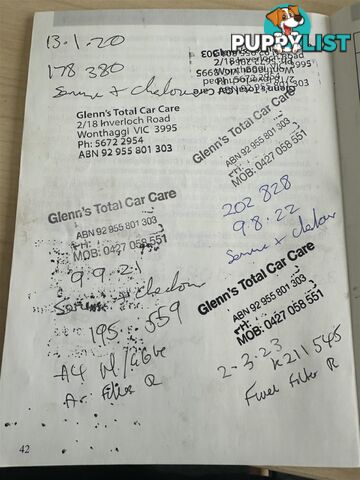 PUPPYLIST
13.1.20
178 380
Service +
Glenn's Total Car Care
2/18 Inverloch Road
Wonthaggi VIC 3995
Ph: 5672 2954
ABN 92 955 801 303
Glenn's Total Car Care
ABN 92 955 801 303
PH:
MOB: 0427 058 551
202 828
9.8.22
Service +
Glenn's Total Car Care
ABN 92 955 801 303
PH:
MOB: 0427 058 551
9.9.21
Service +
195. 559
Air Filter R
Glenn's Total Car Care
ABN 92 955 801 303
PH:
MOB: 0427 058 551
2-3-23
K211 545
Fuel Filter R
42